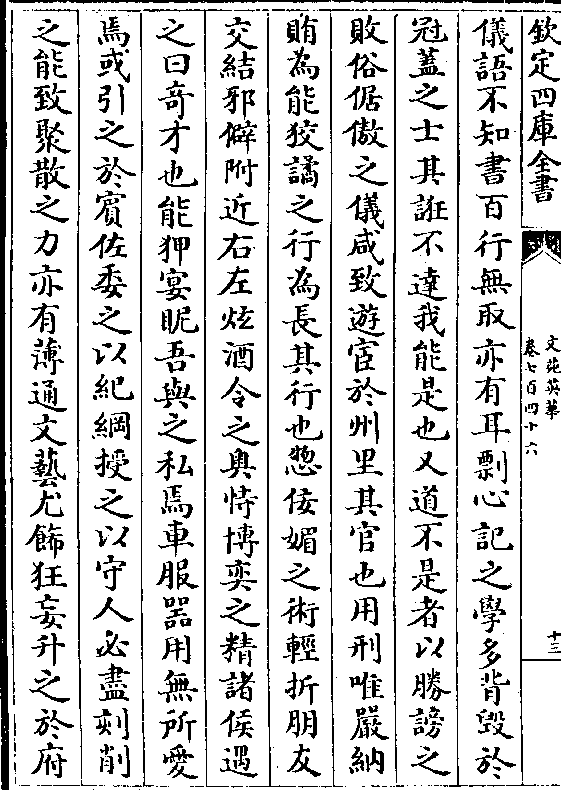 欽定四庫全書
文苑英華
卷七百四十六
十三
儀語不知書百行無取亦有耳剽心記之學多背毀於
冠蓋之士其誑不達我能是也又道不是者以勝謗之
敗俗倨傲之儀咸致遊宦於州里其官也用刑唯嚴納
賄為能狡譎之行為長其行也愗佞媚之術輕折朋友
交結邪僻附近右左炫酒令之奥恃博奕之精諸侯遇
之曰竒才也能狎宴昵吾與之私焉車服器用無所愛
焉或引之於賓佐委之以紀綱授之以守人必盡刻削
之能致聚散之力亦有薄通文藝尤飾狂妄升之於府